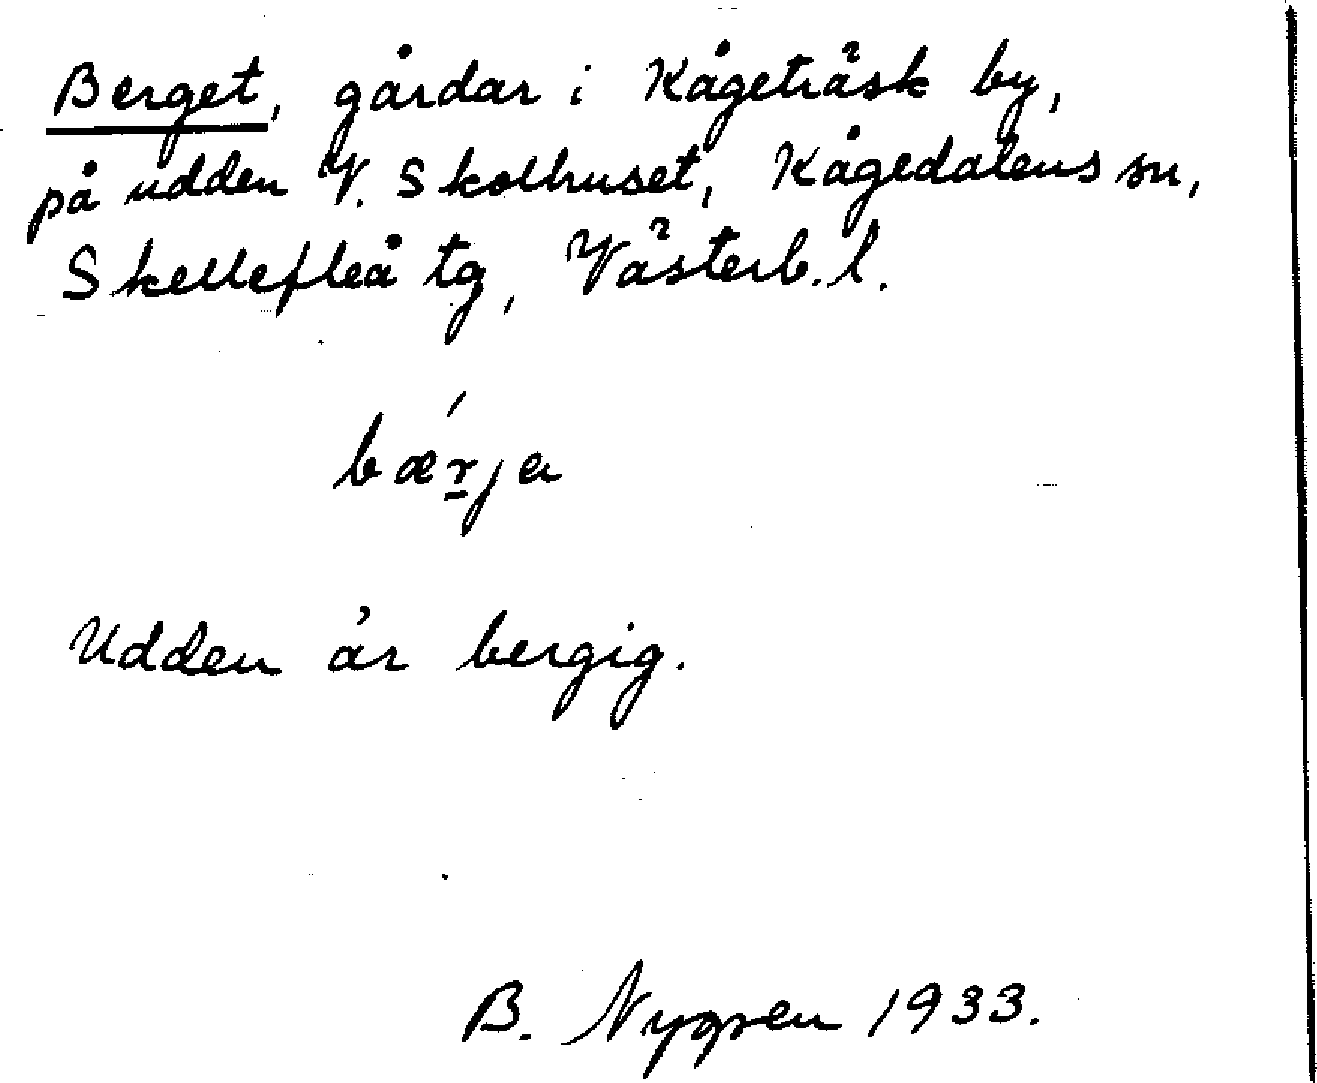 Berget, gårdar i Kågeträsk by,
på udden V. Skolhuset, Kågedalens sn,
Skellefteå tg, Västerb. l.
bǽr̲ja
Udden är bergig.
B. Nygren 1933.